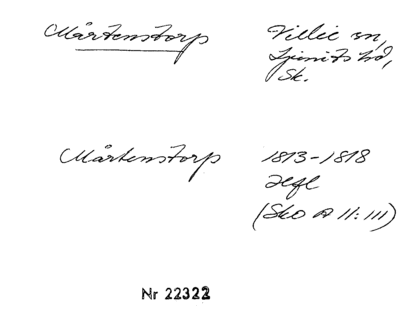 Mårtenstorp Villie sn,
Ljunits hd,
Sk.
Mårtenstorp 1813-1818
Hfl
(Sko A II:III)
Nr 22322